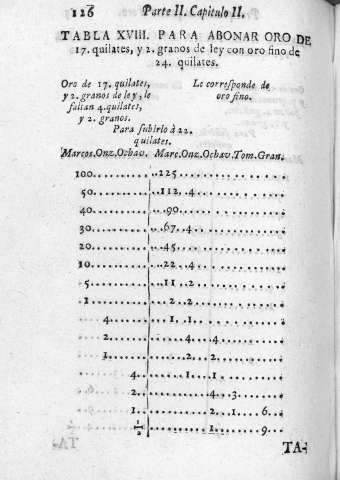 126 Parte II. Capitulo II.
TABLA XVIII. PARA ABONAR ORO DE
17. quilates, y 2. granos de ley con oro fino de
24. quilates.
Oro de 17. quilates, Le corresponde de
y 2. granos de ley, le oro fino.
faltan 4. quilates,
y 2. granos.
Para subirlo à 22.
quilates.
Marcos. Onz. Ochav. Marc. Onz. Ochav. Tom. Gran.
100...........225................
50...........112..4.............
40...........90................
30...........67..4.............
20...........45................
10...........22..4.............
5...........11..2.............
1...........2..2.............
4.......1..1..........
2..........4...4..........
1..........2...2..........
4..........1...1..........
2..........4...3..........
1..........2...1......6...
1/2..............1......9...
TA-